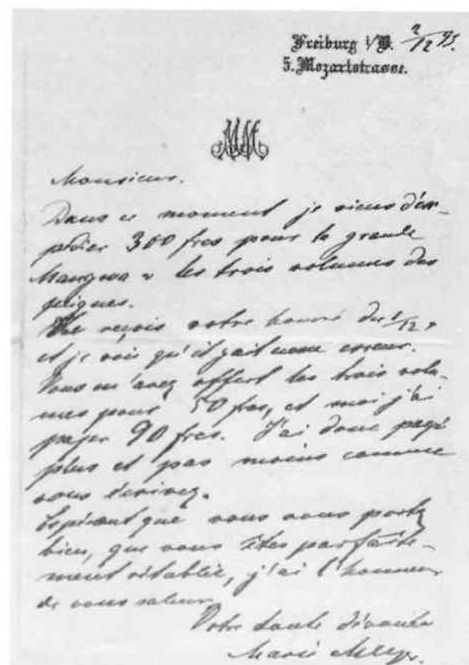 Freiburg i/B. 2/12 95.
5. Mozartstrasse.
MM
Monsieur.
Dans ce moment je viens d'ex-
pédier 300 frcs pour la grande
& les trois volumes des
peignes.
Je reçois votre honoré du 1/12,
et je vois qu'il y ait une erreur.
Vous m'avez offert les trois volu-
mes pour 50 frcs, et moi j'ai
payer 90 frcs. J'ai donc payé
plus et pas moins comme
vous écrivez.
Espérant que vous vous portez
bien, que vous êtes parfaite-
ment rétablie, j'ai l'honneur
de vous saluer
Votre toute dévouée
Marie Meyer.